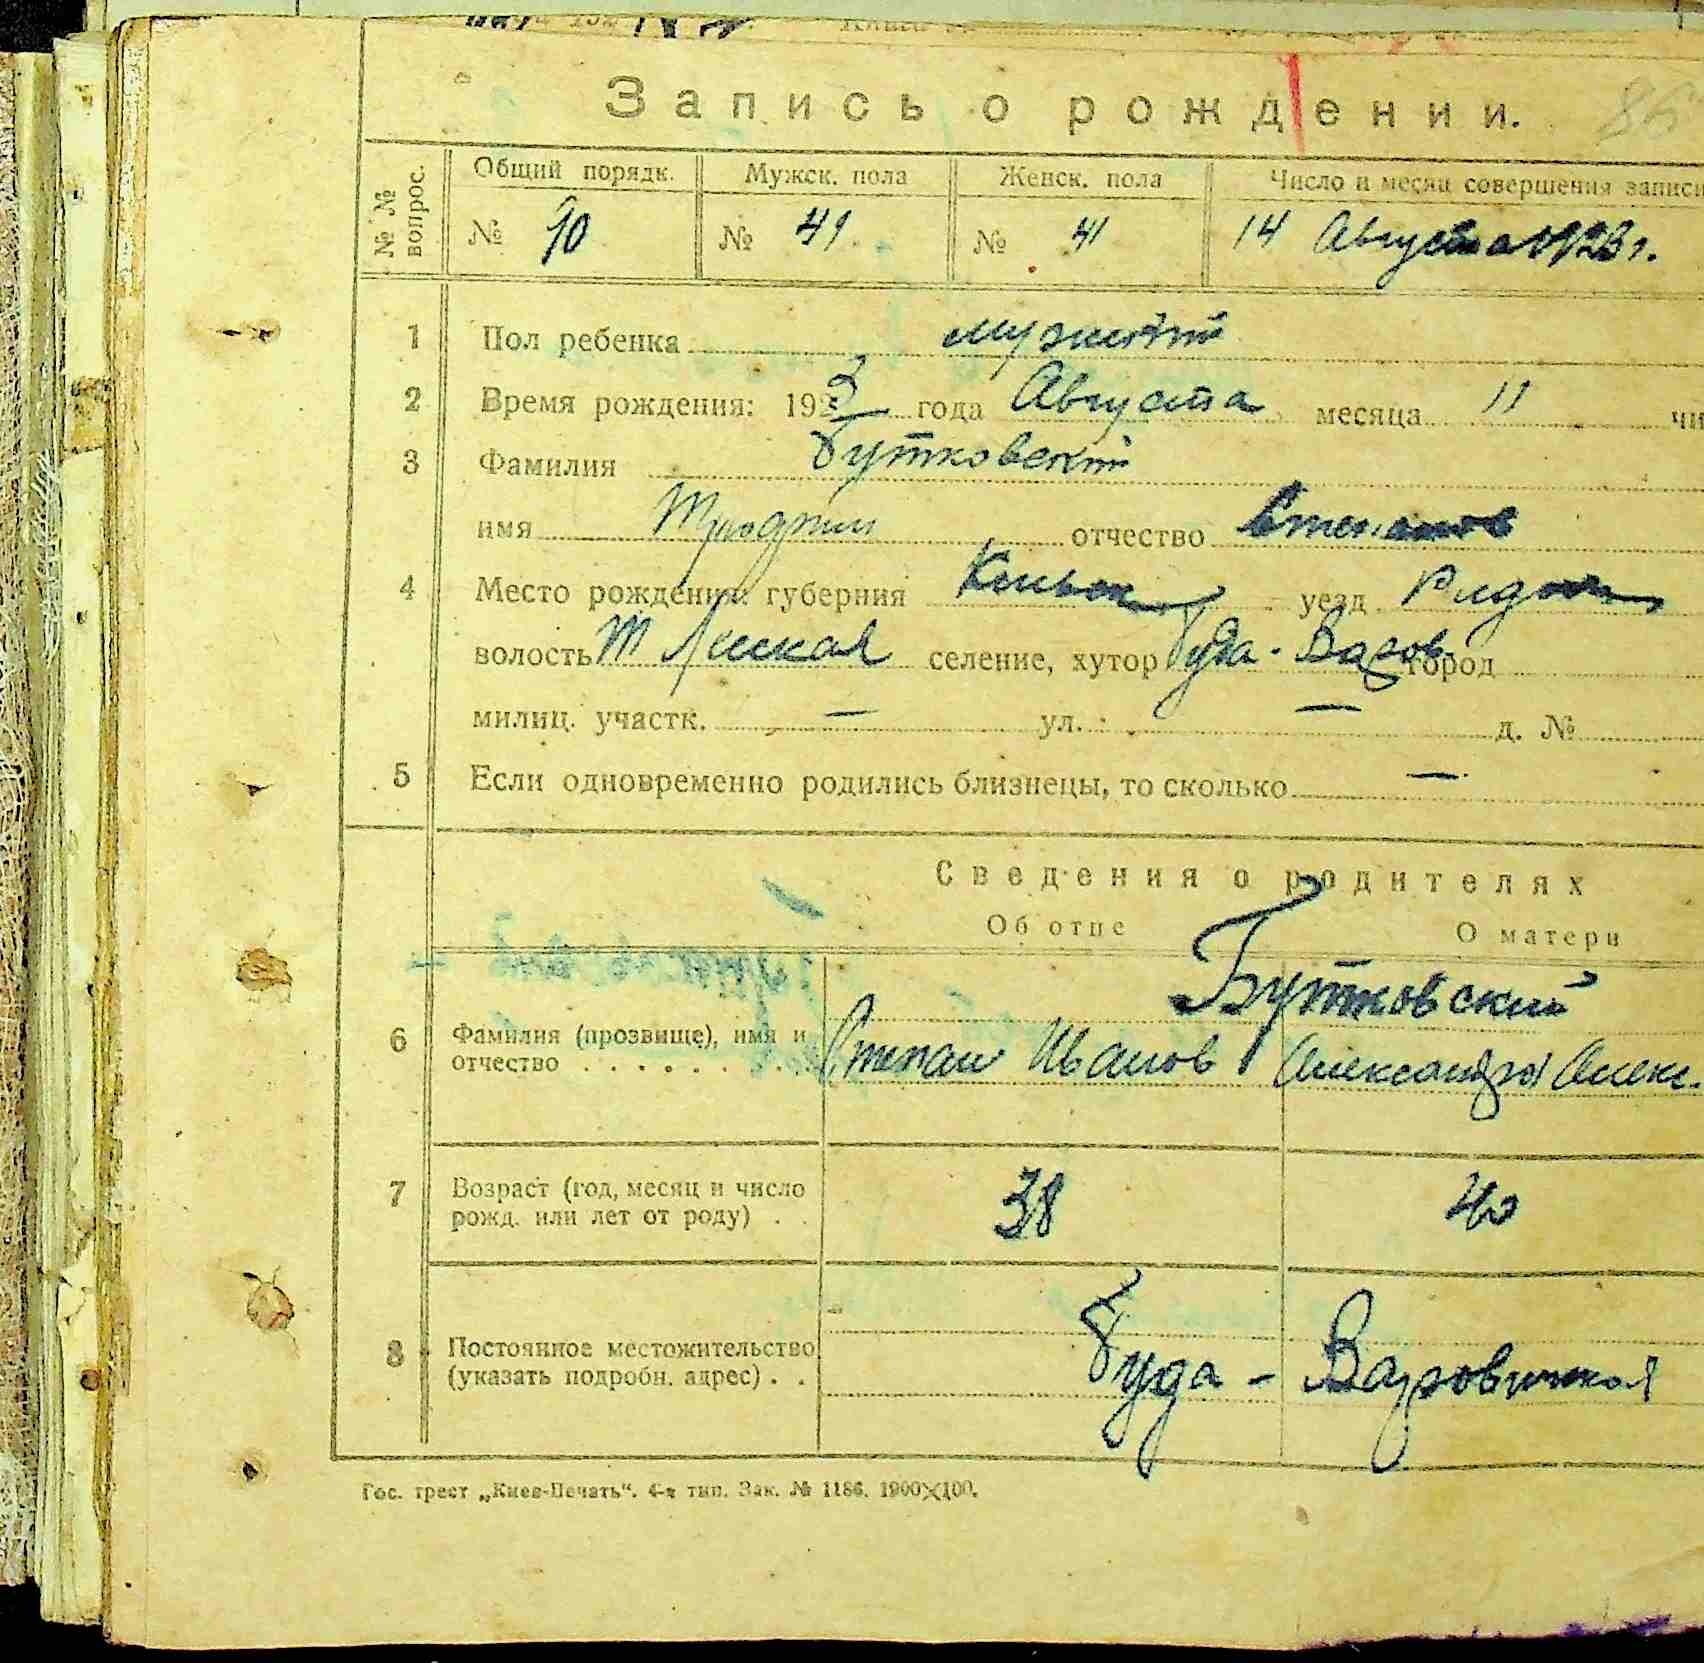 Запись о рождении.
86
№ № вопрос.
Общий порядк. Мужск. пола Женск. пола Число и месяц совершения записи
№ 90 № 49 № 41 14 Августа 1923 г.
1 Пол ребенка мужской
2 Время рождения: 1923 года Августа месяца 11 чи
3 Фамилия Бутковский
имя отчество Степанов
4 Место рождения: губерния Киевск уезд
волость селение, хутор Буда-Вазов город
милиц. участк. — ул. : — д. №
5 Если одновременно родились близнецы, то сколько —
Сведения о родителях
Об отце О матери
Бутковский
6 Фамилия (прозвище), имя и отчество Степан Иванов Александра Алекс.
7 Возраст (год, месяц и число рожд. или лет от роду) . . 38 40
8 Постоянное местожительство (указать подробн. адрес) . . Буда - Вазовичская
Гос. трест „Киев-Печать". 4-я тип. Зак. № 1186. 1900×100.